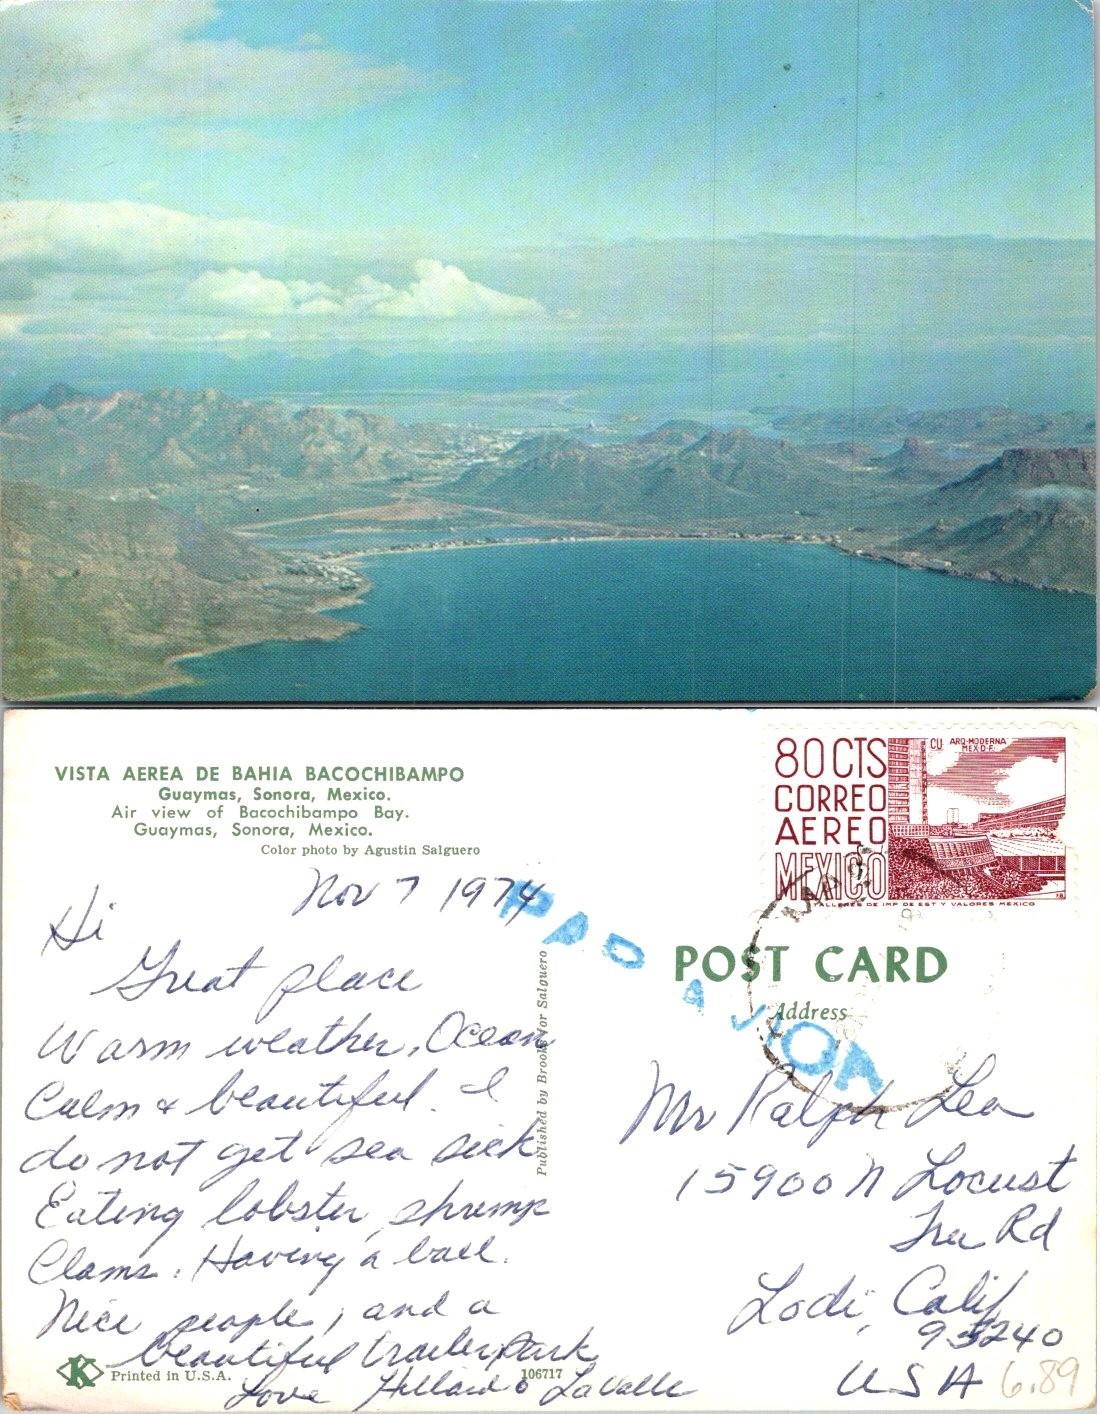 VISTA AEREA DE BAHIA BACOCHIBAMPO
Guaymas, Sonora, Mexico.
Air view of Bacochibampo Bay.
Guaymas, Sonora, Mexico.
Color photo by Agustin Salguero
80 CTS
CORREO
AEREO
MEXICO
CU ARQ-MODERNA
MEX D·F·
TALLERES DE IMP DE EST Y VALORES MEXICO
Nov 7 1974
Hi
Great place
Warm weather, Ocean
Calm & beautiful. I
do not get sea sick
Eating lobster, shrimp
Clams. Having a ball.
Nice people, and a
beautiful trailer Park
Love Hillard & LaValle
K
Printed in U.S.A.
106717
Published by Brooks for Salguero
AVION
POST CARD
Address
Mr Ralph Lea
15900 N Locust
Tree Rd
Lodi, Calif
95240
USA
6.89